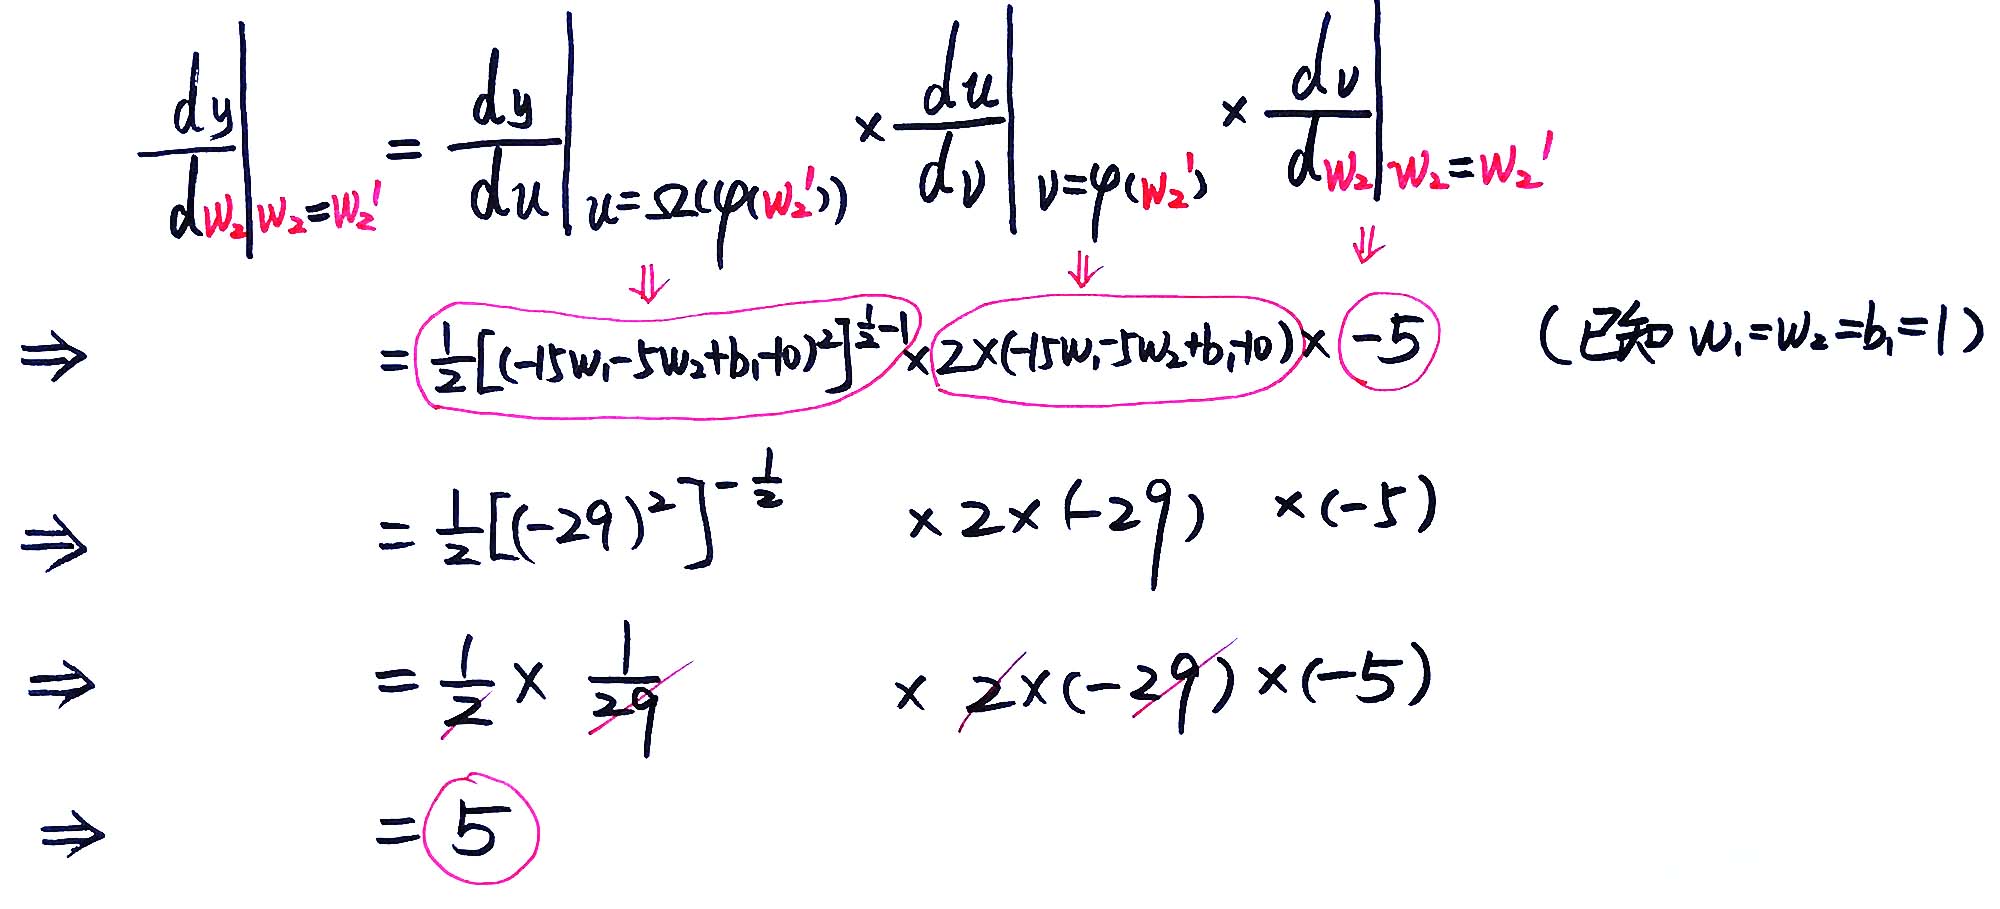 dy/dw₂|w₂=w₂' = dy/du|u=Ω(φ(w₂')) × du/dv|v=φ(w₂') × dv/dw₂|w₂=w₂'
⇓ ⇓ ⇓
⇒ = 1/2[(-15w₁-5w₂+b₁-10)²]^(1/2-1) × 2×(-15w₁-5w₂+b₁-10) × -5 (已知 w₁=w₂=b₁=1)
⇒ = 1/2[(-29)²]^(-1/2) × 2×(-29) ×(-5)
⇒ = 1/2 × 1/29 × 2×(-29)×(-5)
⇒ = 5